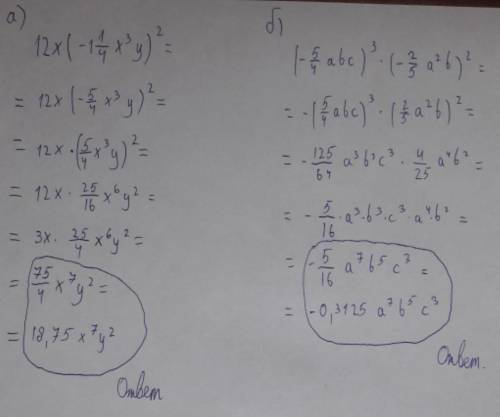 а)
12x(-1 1/4 x³y)² =
= 12x(-5/4 x³y)² =
= 12x·(5/4 x³y)² =
= 12x · 25/16 x⁶y² =
= 3x · 25/4 x⁶y² =
= 75/4 x⁷y² =
= 18,75 x⁷y²
Ответ
б)
(-5/4 abc)³ · (-2/5 a²b)² =
= -(5/4 abc)³ · (2/5 a²b)² =
= -125/64 a³b³c³ · 4/25 a⁴b² =
= -5/16 · a³·b³·c³·a⁴·b² =
= -5/16 a⁷b⁵c³ =
= -0,3125 a⁷b⁵c³
Ответ.